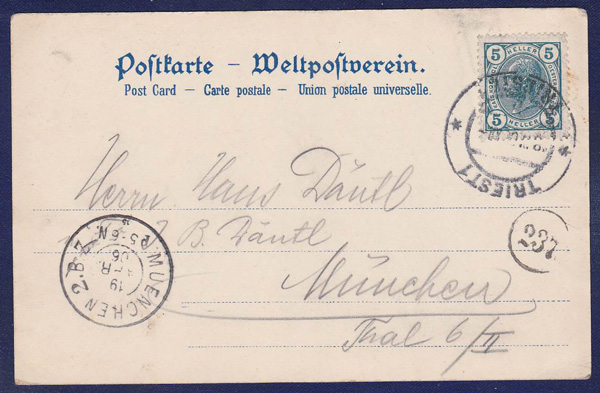 Postkarte – Weltpostverein.
Post Card – Carte postale – Union postale universelle.
5 HELLER 5
5 HELLER 5
TRIEST 1
237
Herrn Hans Däntl
B. Däntl
München
Thal 6/II
MUENCHEN 2.B.Z.
19
APR.
06
N 5-6N